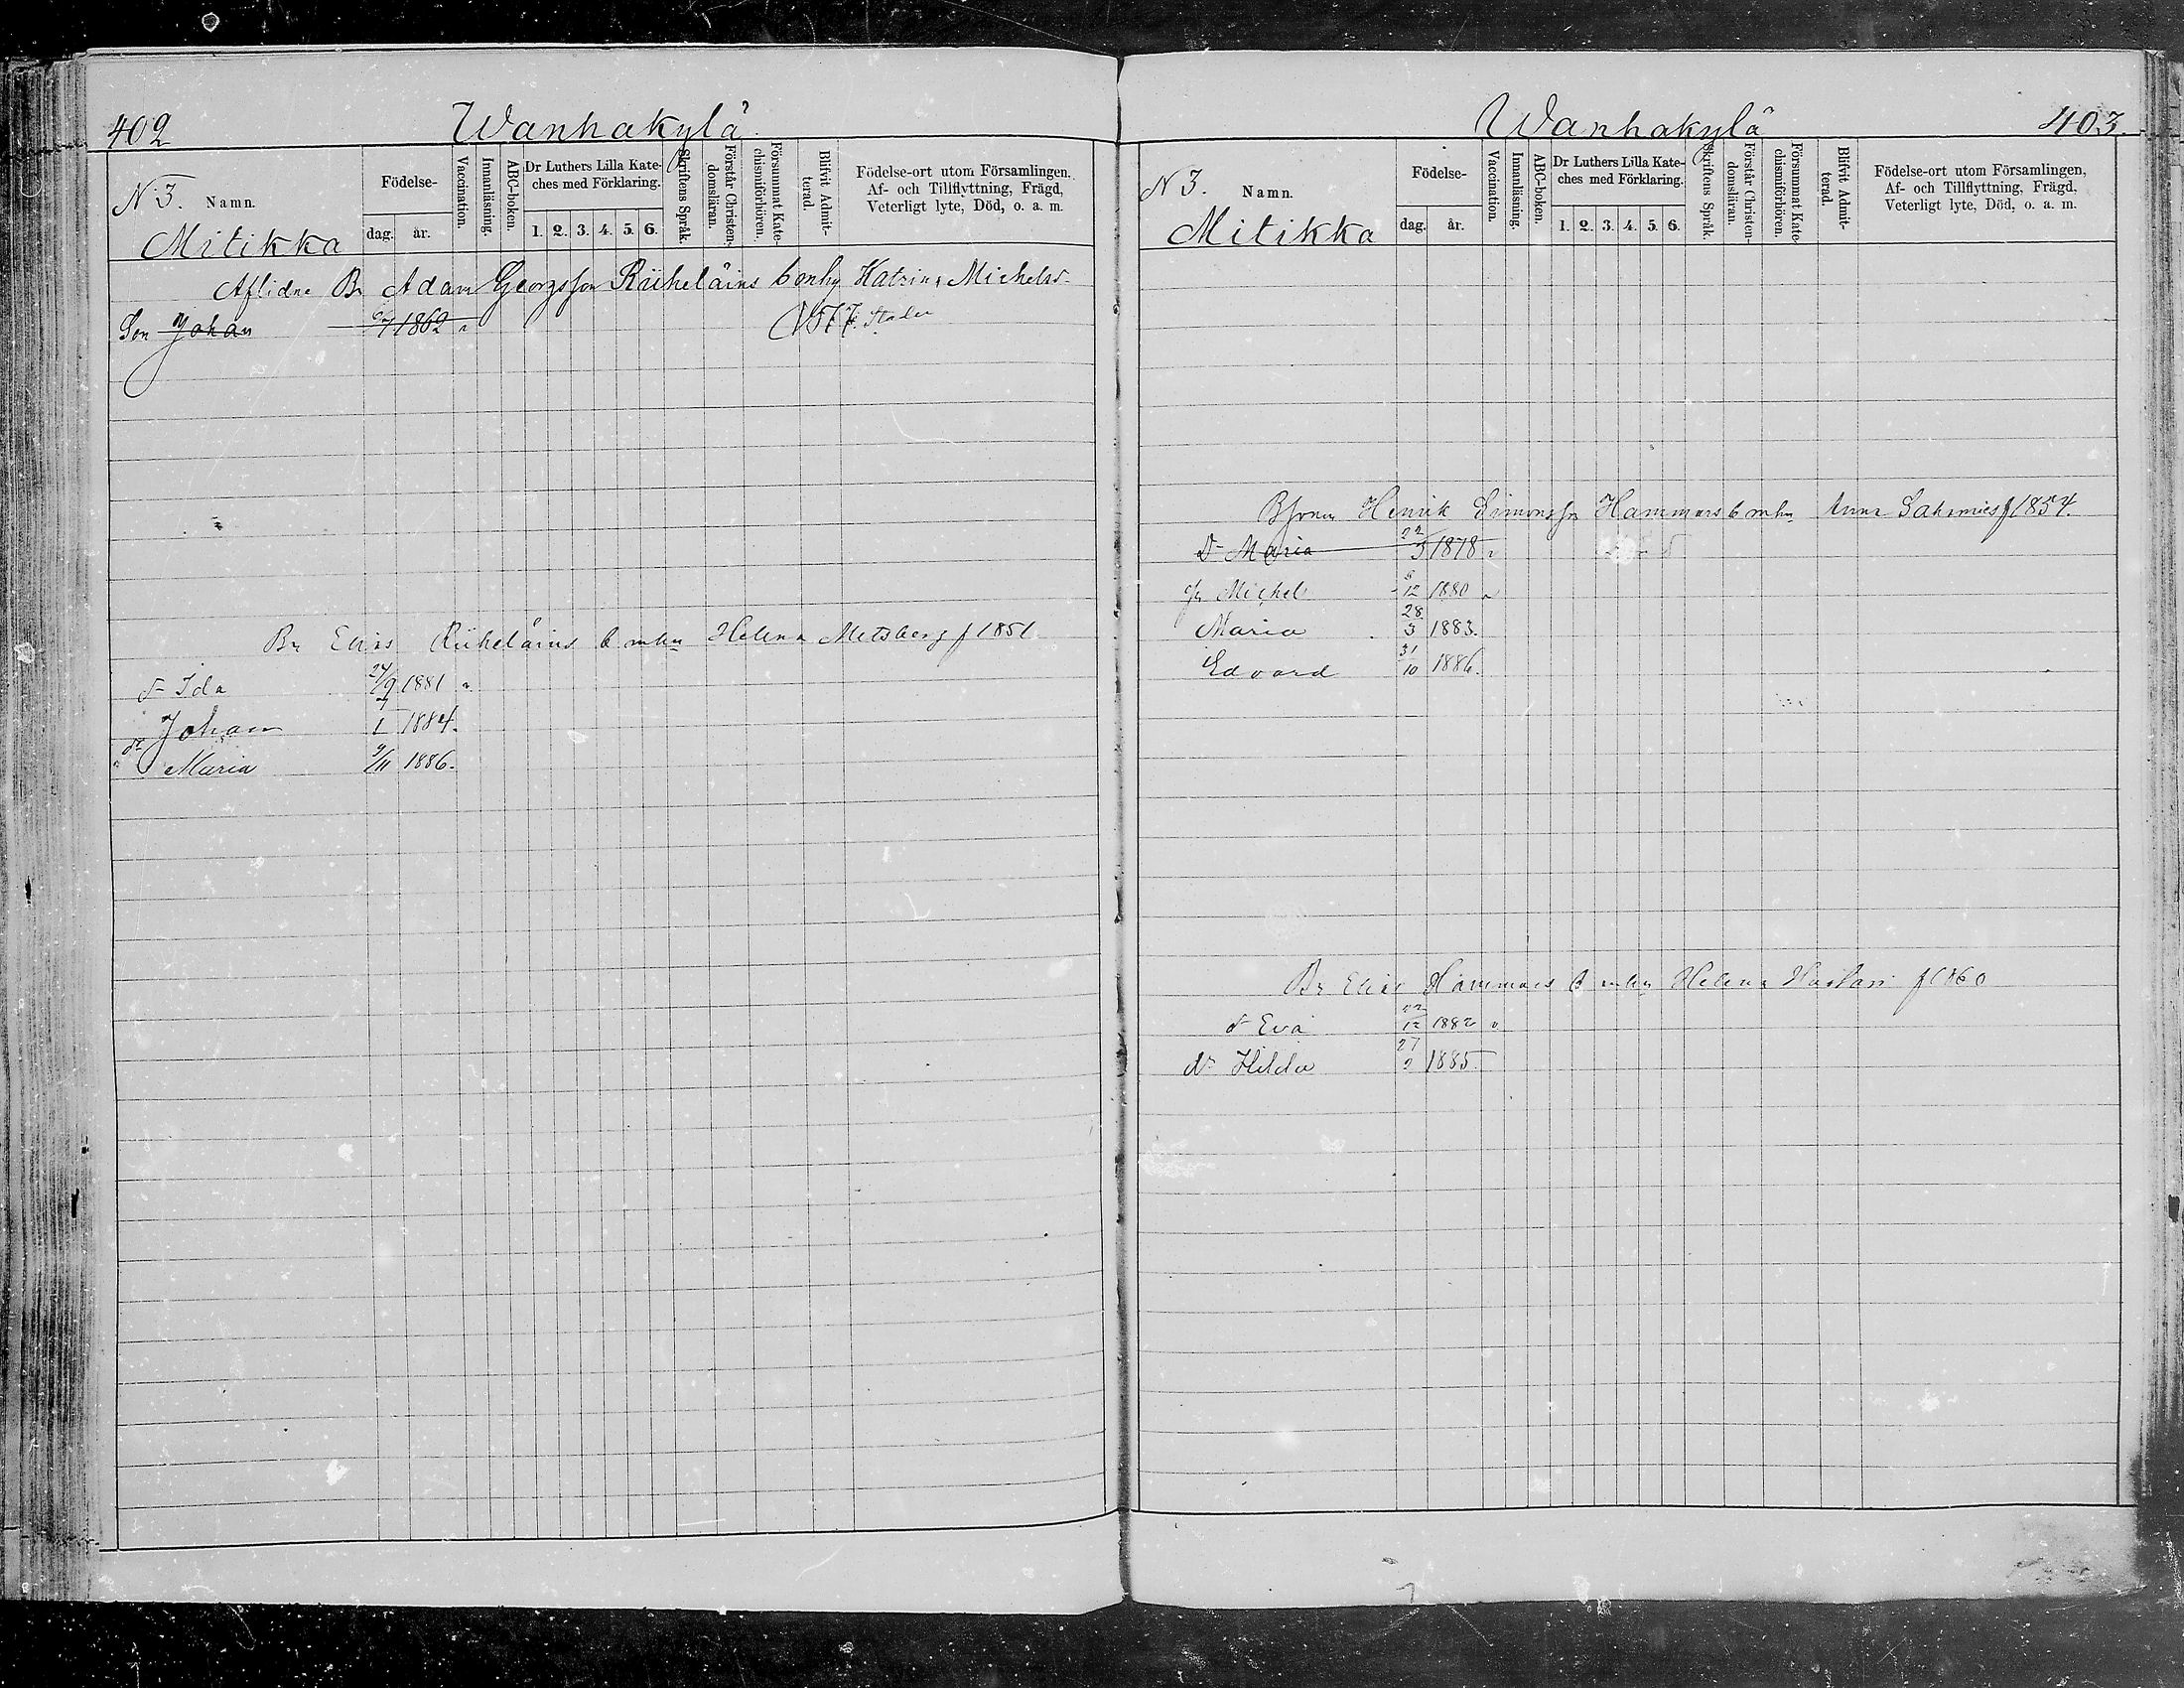 402
Wanhakylä
N 3. Namn.
Mitikka
Födelse-
dag. år.
Vaccination.
Innanläsning.
ABC-boken.
Dr Luthers Lilla Kate-
ches med Förklaring.
1. 2. 3. 4. 5. 6.
Skriftens Språk.
Förstår Christen-
domsläran.
Försummat Kate-
chismiförhören.
Blifvit Admit-
terad.
Födelse-ort utom Församlingen.
Af- och Tillflyttning, Frägd,
Veterligt lyte, Död, o. a. m.
Aflidne Bn Adam Georgsson Riiheläins b o mhu Katrina Michelsd.
Son Johan 1862
Bn Elias Riiheläins b o mhu Helena Metsberg f 1851
dr Ida 24/9 1881
Johan 1884.
" Maria 9/11 1886.
Wanhakylä
403.
N 3. Namn.
Mitikka
Födelse-
dag. år.
Vaccination.
Innanläsning.
ABC-boken.
Dr Luthers Lilla Kate-
ches med Förklaring.
1. 2. 3. 4. 5. 6.
Skriftens Språk.
Förstår Christen-
domsläran.
Försummat Kate-
chismiförhören.
Blifvit Admit-
terad.
Födelse-ort utom Församlingen,
Af- och Tillflyttning, Frägd,
Veterligt lyte, Död, o. a. m.
Henrik Simonsson Hammars b o mhu Anna f 1854.
Dr Maria 22/3 1878
Michel 12 1880
Maria 28/3 1883.
Edvard 31/10 1886.
Bn Elias Hammars b o mhu Helena f 1860
dr Eva 22/12 1882
dr Hilda 27/2 1885.